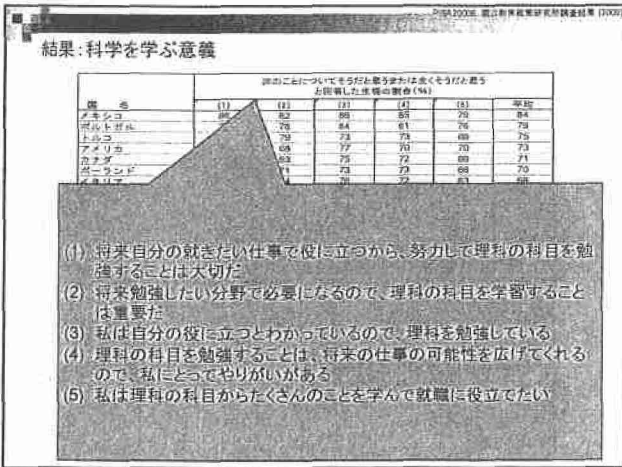 PISA2006, 国立教育政策研究所調査結果 (2007)
結果:科学を学ぶ意義
次のことについてそうだと思うまたは全くそうだと思う
と回答した生徒の割合(%)
国 名 (1) (2) (3) (4) (5) 平均
メキシコ 82 85 79 84
ポルトガル 78 84 76 79
トルコ 79 73 73 75
アメリカ 68 77 70 70 73
カナダ 75 72 71
ポーランド 71 73 73 70
イタリア 76 72 63
(1) 将来自分の就きたい仕事で役に立つから、努力して理科の科目を勉
強することは大切だ
(2) 将来勉強したい分野で必要になるので、理科の科目を学習すること
は重要だ
(3) 私は自分の役に立つとわかっているので、理科を勉強している
(4) 理科の科目を勉強することは、将来の仕事の可能性を広げてくれる
ので、私にとってやりがいがある
(5) 私は理科の科目からたくさんのことを学んで就職に役立てたい